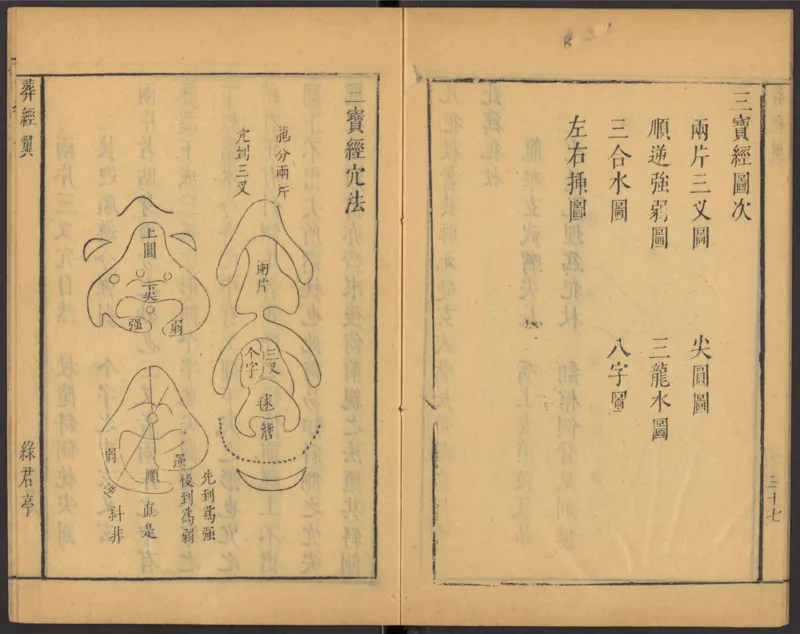 三寶經圖次
兩片三叉圖 尖圓圖
順逆強弱圖 三龍水圖
三合水圖 八字圖
左右揷圖
三十七
三寶經穴法
龍分兩片
穴到三叉
兩片
三叉
个字
毬
簷
上圓
下尖
强
弱
强
弱
順
先到爲强
後到爲弱
直是
斜非
葬經翼
綠君亭